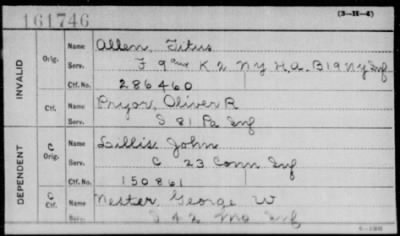 161746
(3-H-4)
INVALID
Orig.
Name Allen, Titus
Serv. F 9 K 2 NY H.A. B 19 NY Inf
Ctf. No. 286460
Ctf.
Name Pryor, Oliver R
Serv. S 81 Pa Inf
DEPENDENT
C Orig.
Name Lillis John
Serv. C 23 Conn Inf
Ctf. No. 150861
C Ctf.
Name Nester, George W
Serv. 42 Mo Inf